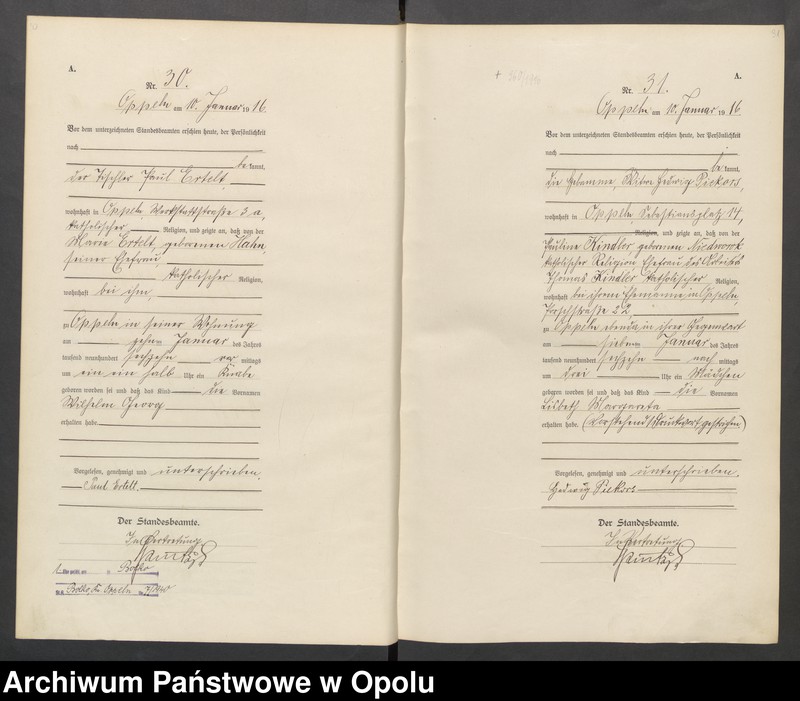 A.
Nr. 30.
Oppeln am 10. Januar 1916.
Vor dem unterzeichneten Standesbeamten erschien heute, der Persönlichkeit
nach
bekannt,
der Tischler Paul Ertelt
wohnhaft in Oppeln, Werkstattstraße 3 a,
katholischer Religion, und zeigte an, daß von der
Marie Ertelt, geborenen Hahn,
seiner Ehefrau,
katholischer Religion,
wohnhaft bei ihm,
zu Oppeln in seiner Wohnung
am zehnten Januar des Jahres
tausend neunhundert sechzehn vormittags
um ein ein halb Uhr ein Knabe
geboren worden sei und daß das Kind die Vornamen
Wilhelm Georg
erhalten habe.
Vorgelesen, genehmigt und unterschrieben.
Paul Ertelt.
Der Standesbeamte.
In Vertretung
Bolko
Bolko, Kr. Oppeln
A.
Nr. 31.
Oppeln am 10. Januar 1916.
Vor dem unterzeichneten Standesbeamten erschien heute, der Persönlichkeit
nach
bekannt,
die Hebamme, Witwe Hedwig Piekors,
wohnhaft in Oppeln, Sebastiansplatz 14,
Religion, und zeigte an, daß von der
Pauline Kindler, geborenen
katholischer Religion, Ehefrau des Arbeiters
Thomas Kindler, katholischer Religion,
wohnhaft bei ihrem Ehemanne in Oppeln,
22,
zu Oppeln ebenda in ihrer Gegenwart
am siebenten Januar des Jahres
tausend neunhundert sechzehn nachmittags
um drei Uhr ein Mädchen
geboren worden sei und daß das Kind die Vornamen
Lisbeth Margareta
erhalten habe. (Vorstehend 1 Druckwort gestrichen)
Vorgelesen, genehmigt und unterschrieben.
Hedwig Piekors
Der Standesbeamte.
In Vertretung
Archiwum Państwowe w Opolu